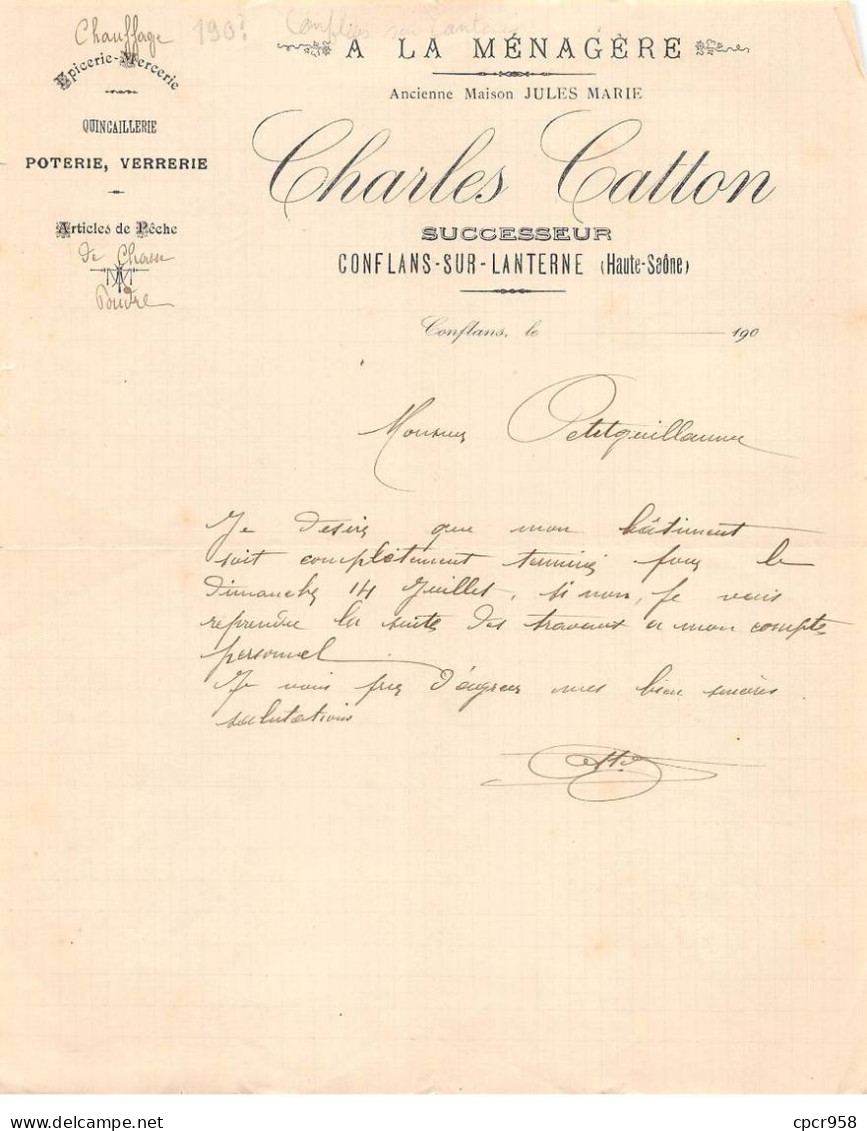 Chauffage
190?
Conflans sur Lanterne
Epicerie-Mercerie
QUINCAILLERIE
POTERIE, VERRERIE
Articles de Pêche
de Chasse
Poudre
A LA MÉNAGÈRE
Ancienne Maison JULES MARIE
Charles Catton
SUCCESSEUR
CONFLANS-SUR-LANTERNE (Haute-Saône)
Conflans, le 190
Monsieur Petitguillaume
Je desire que mon bâtiment
soit complètement terminé pour le
dimanche 14 Juillet, si non, je vais
reprendre la suite des travaux a mon compte
personnel.
Je vous prie d'agréer mes bien sincères
salutations
cpcr958